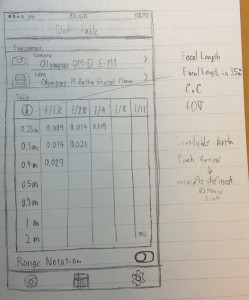 DoF Table
Equipment
Camera
Olympus OM-D E-M1
Lens
Olympus M.Zuiko Digital 75mm
Table
f/1.8 f/2.8 f/4 f/8 f/11
0.25m 0.009 0.014 0.019
0.3m 0.014 0.021
0.4m 0.027
0.5m
0.7m
1m
2m ∞
Range Notation
Focal Length
Focal Length in 35mm
CoC
FOV
Scrollable
Pinch Vertical
Distance